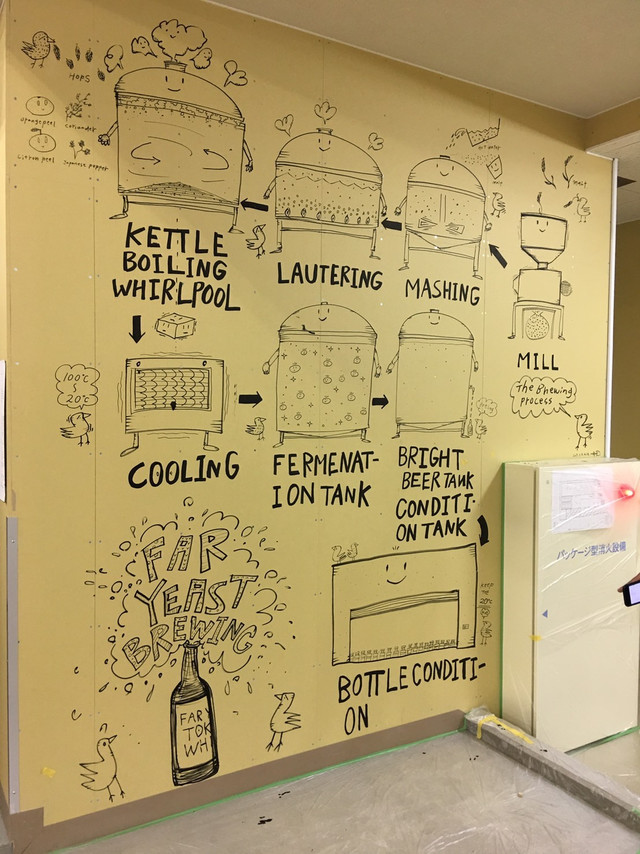 HOPS
orange peel
coriander
Japanese pepper
hot water
malt
KETTLE
BOILING
WHIRLPOOL
LAUTERING
MASHING
MILL
The Brewing
process
100℃
20℃
COOLING
FERMENAT-
ION TANK
BRIGHT
BEER TANK
CONDITI-
ON TANK
パッケージ型消火設備
FAR
YEAST
BREWING
FAR
TOK
WH
BOTTLE CONDITI-
ON